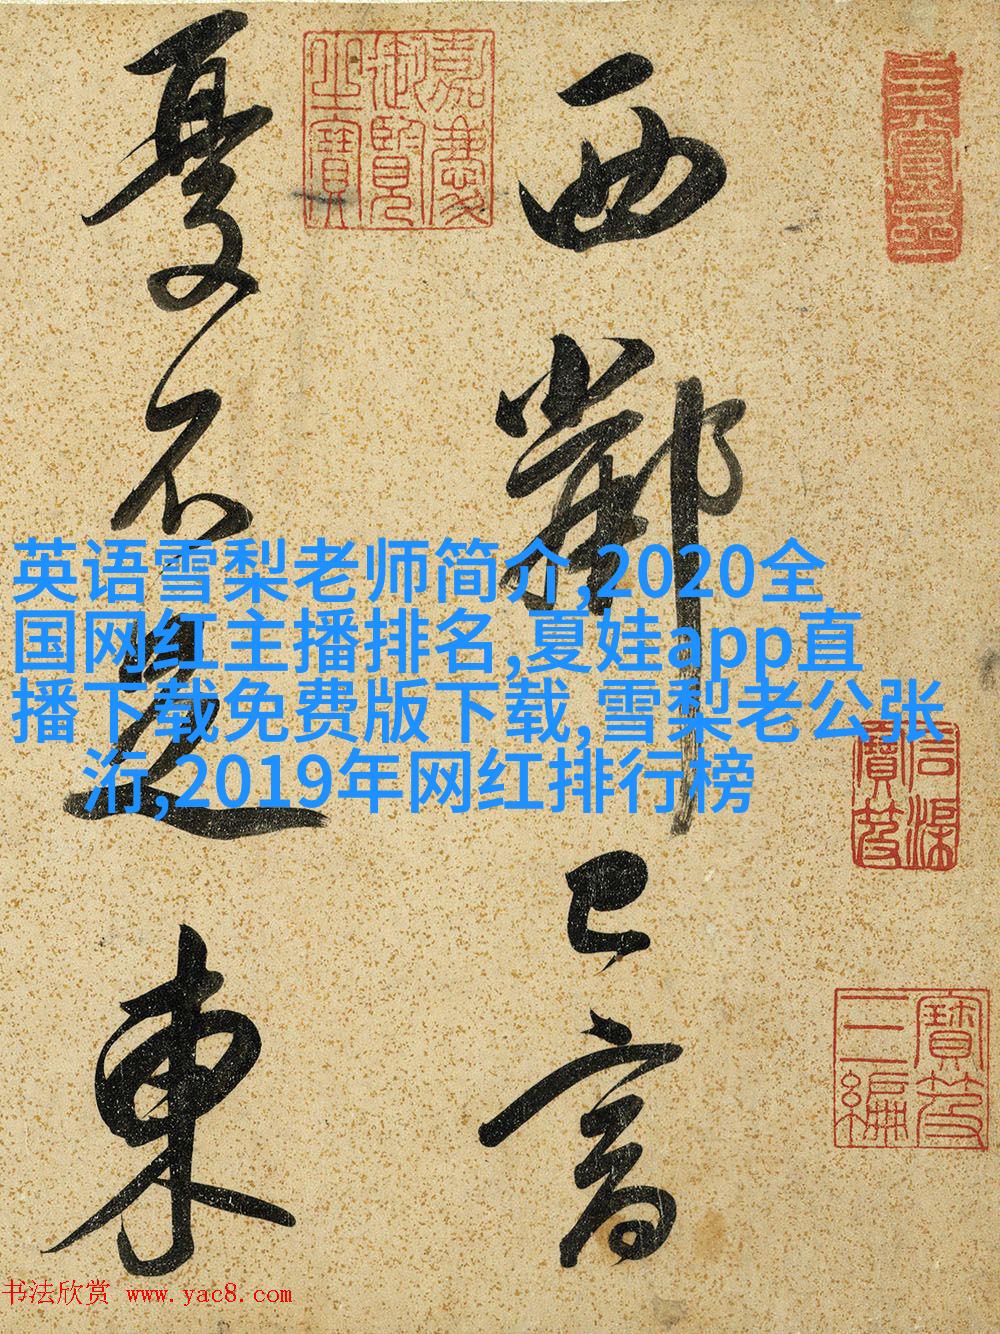 西鄰已富
憂不足東
嘉慶
御覽
之寶
石渠
寶笈
寶笈
三編
英语雪梨老师简介,2020全
国网红主播排名,夏娃app直
播下载免费版下载,雪梨老公张
洐,2019年网红排行榜
书法欣赏 www.yac8.com